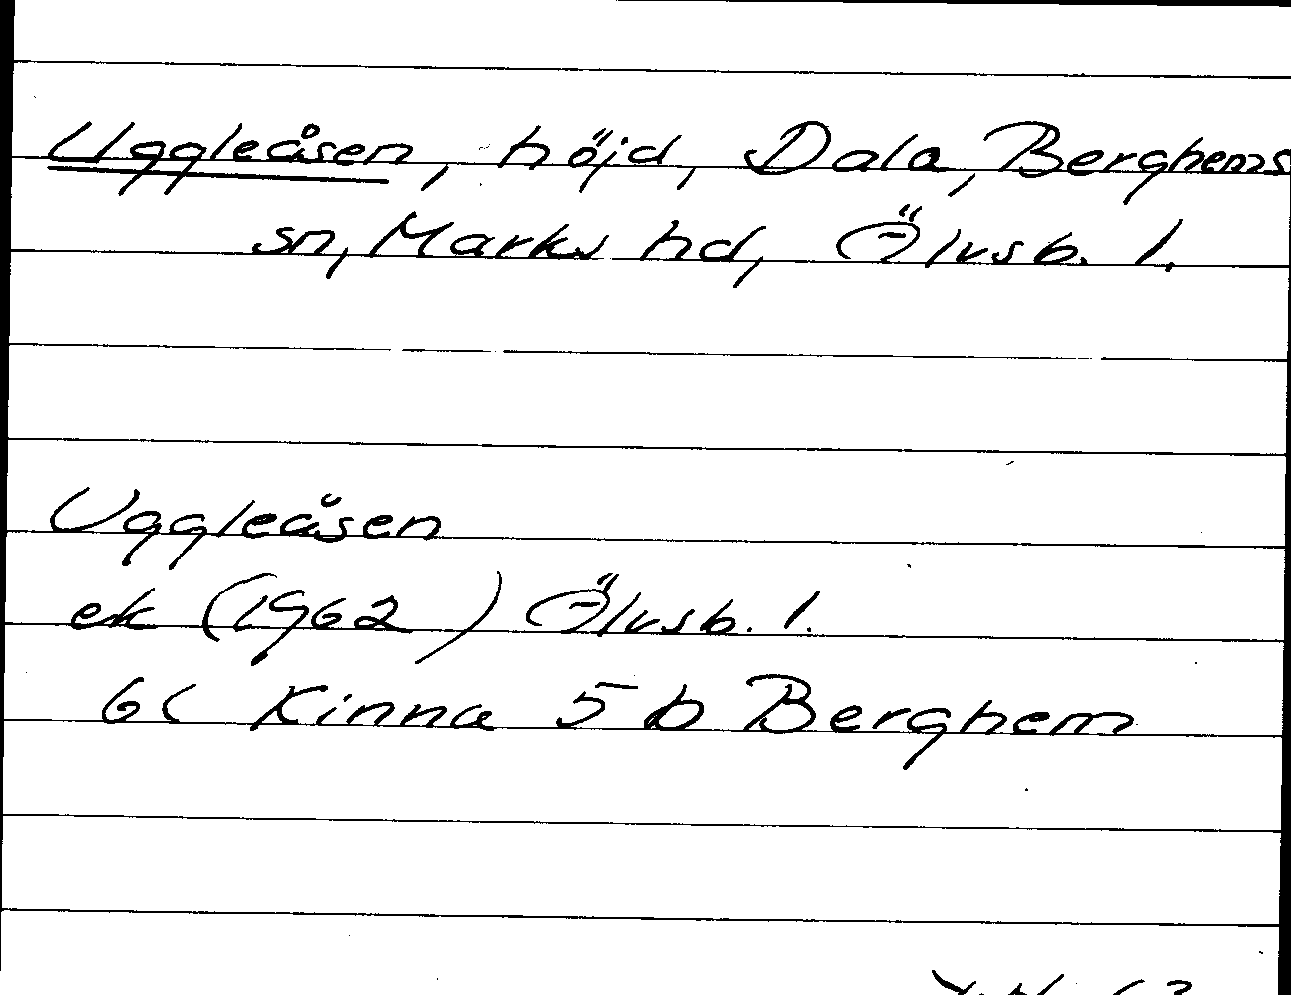 Uggleåsen, höjd, Dala, Berghems
sn, Marks hd, Älvsb. l.
Uggleåsen
ek (1962) Älvsb. l.
6C Kinna 5 b Berghem